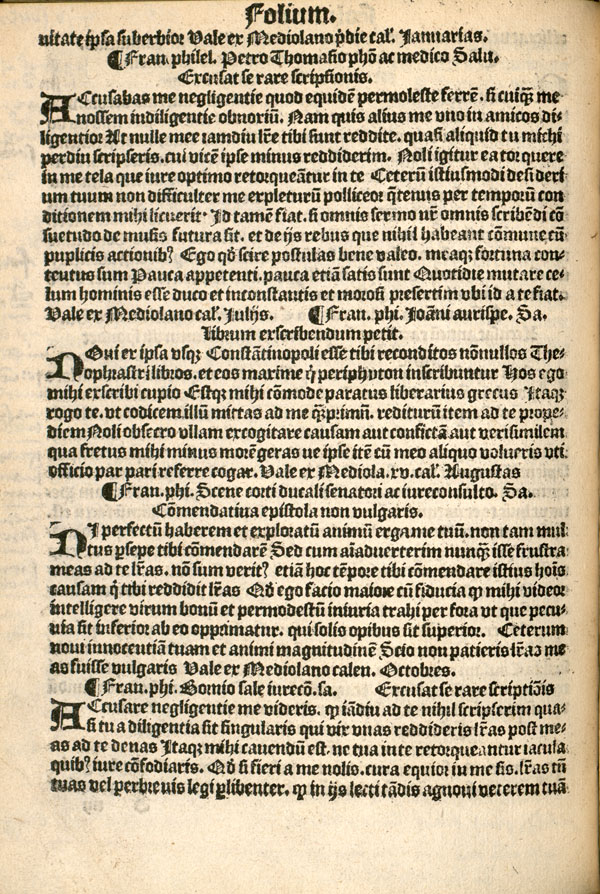 Folium.
uitate ip̄a suberbior Uale ex Mediolano p̄die cal̄. Januarias.
¶ Fran. philel. Petro Thomasio phō ac medico Salu.
Excusat se rare scriptionis.
ACcusabas me negligentie quod equidē permoleste ferrē. si cuiqȝ me
nossem indiligentie obnoxiū. Nam quis alius me vno in amicos di⸗
ligentior At nulle mee iamdiu lr̄e tibi sunt reddite. quasi aliquid tu michi
perdiu scripseris. cui vicē ipse minus reddiderim. Noli igitur ea torquere
in me tela que iure optimo retorqueāntur in te Ceterū istiusmodi desideri
um tuum non difficulter me expleturū polliceor q̄tenus per temporū con
ditionem mihi licuerit. Id tamē fiat. si omnis sermo nr̄ omnis scribēdi cō
suetudo de musis futura sit. et de ijs rebus que nihil habeant cōmune cū
puplicis actionibꝰ Ego qd̄ scire postulas bene valeo. meaqȝ fortuna con⸗
tentus sum Pauca appetenti. pauca etiā satis sunt Quotidie mutare ce⸗
lum hominis esse duco et inconstantis et morosi presertim vbi id a te fiat.
Uale ex Mediolano cal̄. Julijs. ¶ Fran. phi. Joāni aurispe. Sa.
Librum exscribendum petit.
NOui ex ipsa vsqȝ Constātinopoli esse tibi reconditos nōnullos The⸗
ophrasti libros. et eos maxime q̄ periphyton inscribuntur Hos ego
mihi exscribi cupio Estqȝ mihi cōmode paratus librarius grecus Itaqȝ
rogo te. vt codicem illū mittas ad me q̄ȝprimū. rediturū item ad te prope⸗
diem Noli obsecro vllam excogitare causam aut confictā aut verisimilem
qua fretus mihi minus morē geras ne ipse itē cū meo aliquo volueris vti
officio par pari referre cogar. Uale ex Mediola. xv. cal̄. Augustas
¶ Fran. phi. Scene corti ducali senatori ac iureconsulto. Sa.
Cōmendatiua epistola non vulgaris.
NI perfectū haberem et exploratū animū erga me tuū. non tam mul⸗
tus p̄sepe tibi cōmendarē Sed cum aīaduerterim nunqȝ isse frustra
meas ad te lr̄as. nō sum veritꝰ etiā hoc tēpore tibi cōmendare istius hoīs
causam q̄ tibi reddidit lr̄as Qd̄ ego facio maiore cū fiducia ꝙ mihi videor
intelligere virum bonū et permodestū iniuria trahi per fora vt que pecu⸗
nia sit inferior ab eo opprimatur. qui solis opibus sit superior. Ceterum
noui innocentiā tuam et animi magnitudinē Scio non patieris lr̄as me
as fuisse vulgaris Uale ex Mediolano calen. Octobres.
¶ Fran. phi. Gornio sale iurecō. sa. Excusat se rare scriptiōis
ACcusare negligentie me videris. ꝙ iādiu ad te nihil scripserim qua⸗
si tu a diligentia sit singularis qui vix vnas reddideris lr̄as post me⸗
as ad te denas Itaqȝ mihi cauendū est. ne tua in te retorqueantur iacula
quibꝰ iure cōfodiaris. Qd̄ si fieri a me nolis. cura equior in me sis. lr̄as tū
tuas vel perbreuis legi p̄libenter. ꝙ in ijs lecti tādis agnoui veterem tuā